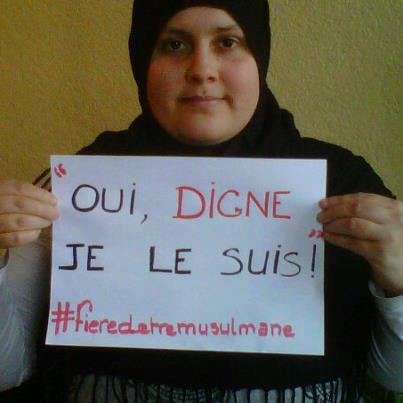 "OUi, DiGNE
JE LE SUiS!"
#fieredetremusulmane